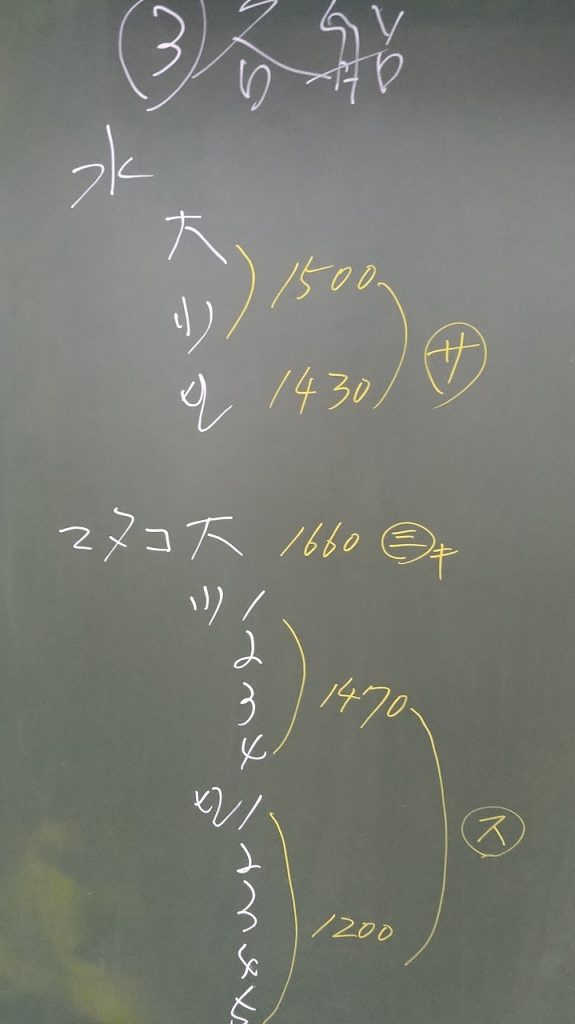 ③各船
水
大
小 1500
サ
1430
マダコ大 1660 ㊂キ
小1
2
3 1470
4
ス
1
2
3 1200
4
5